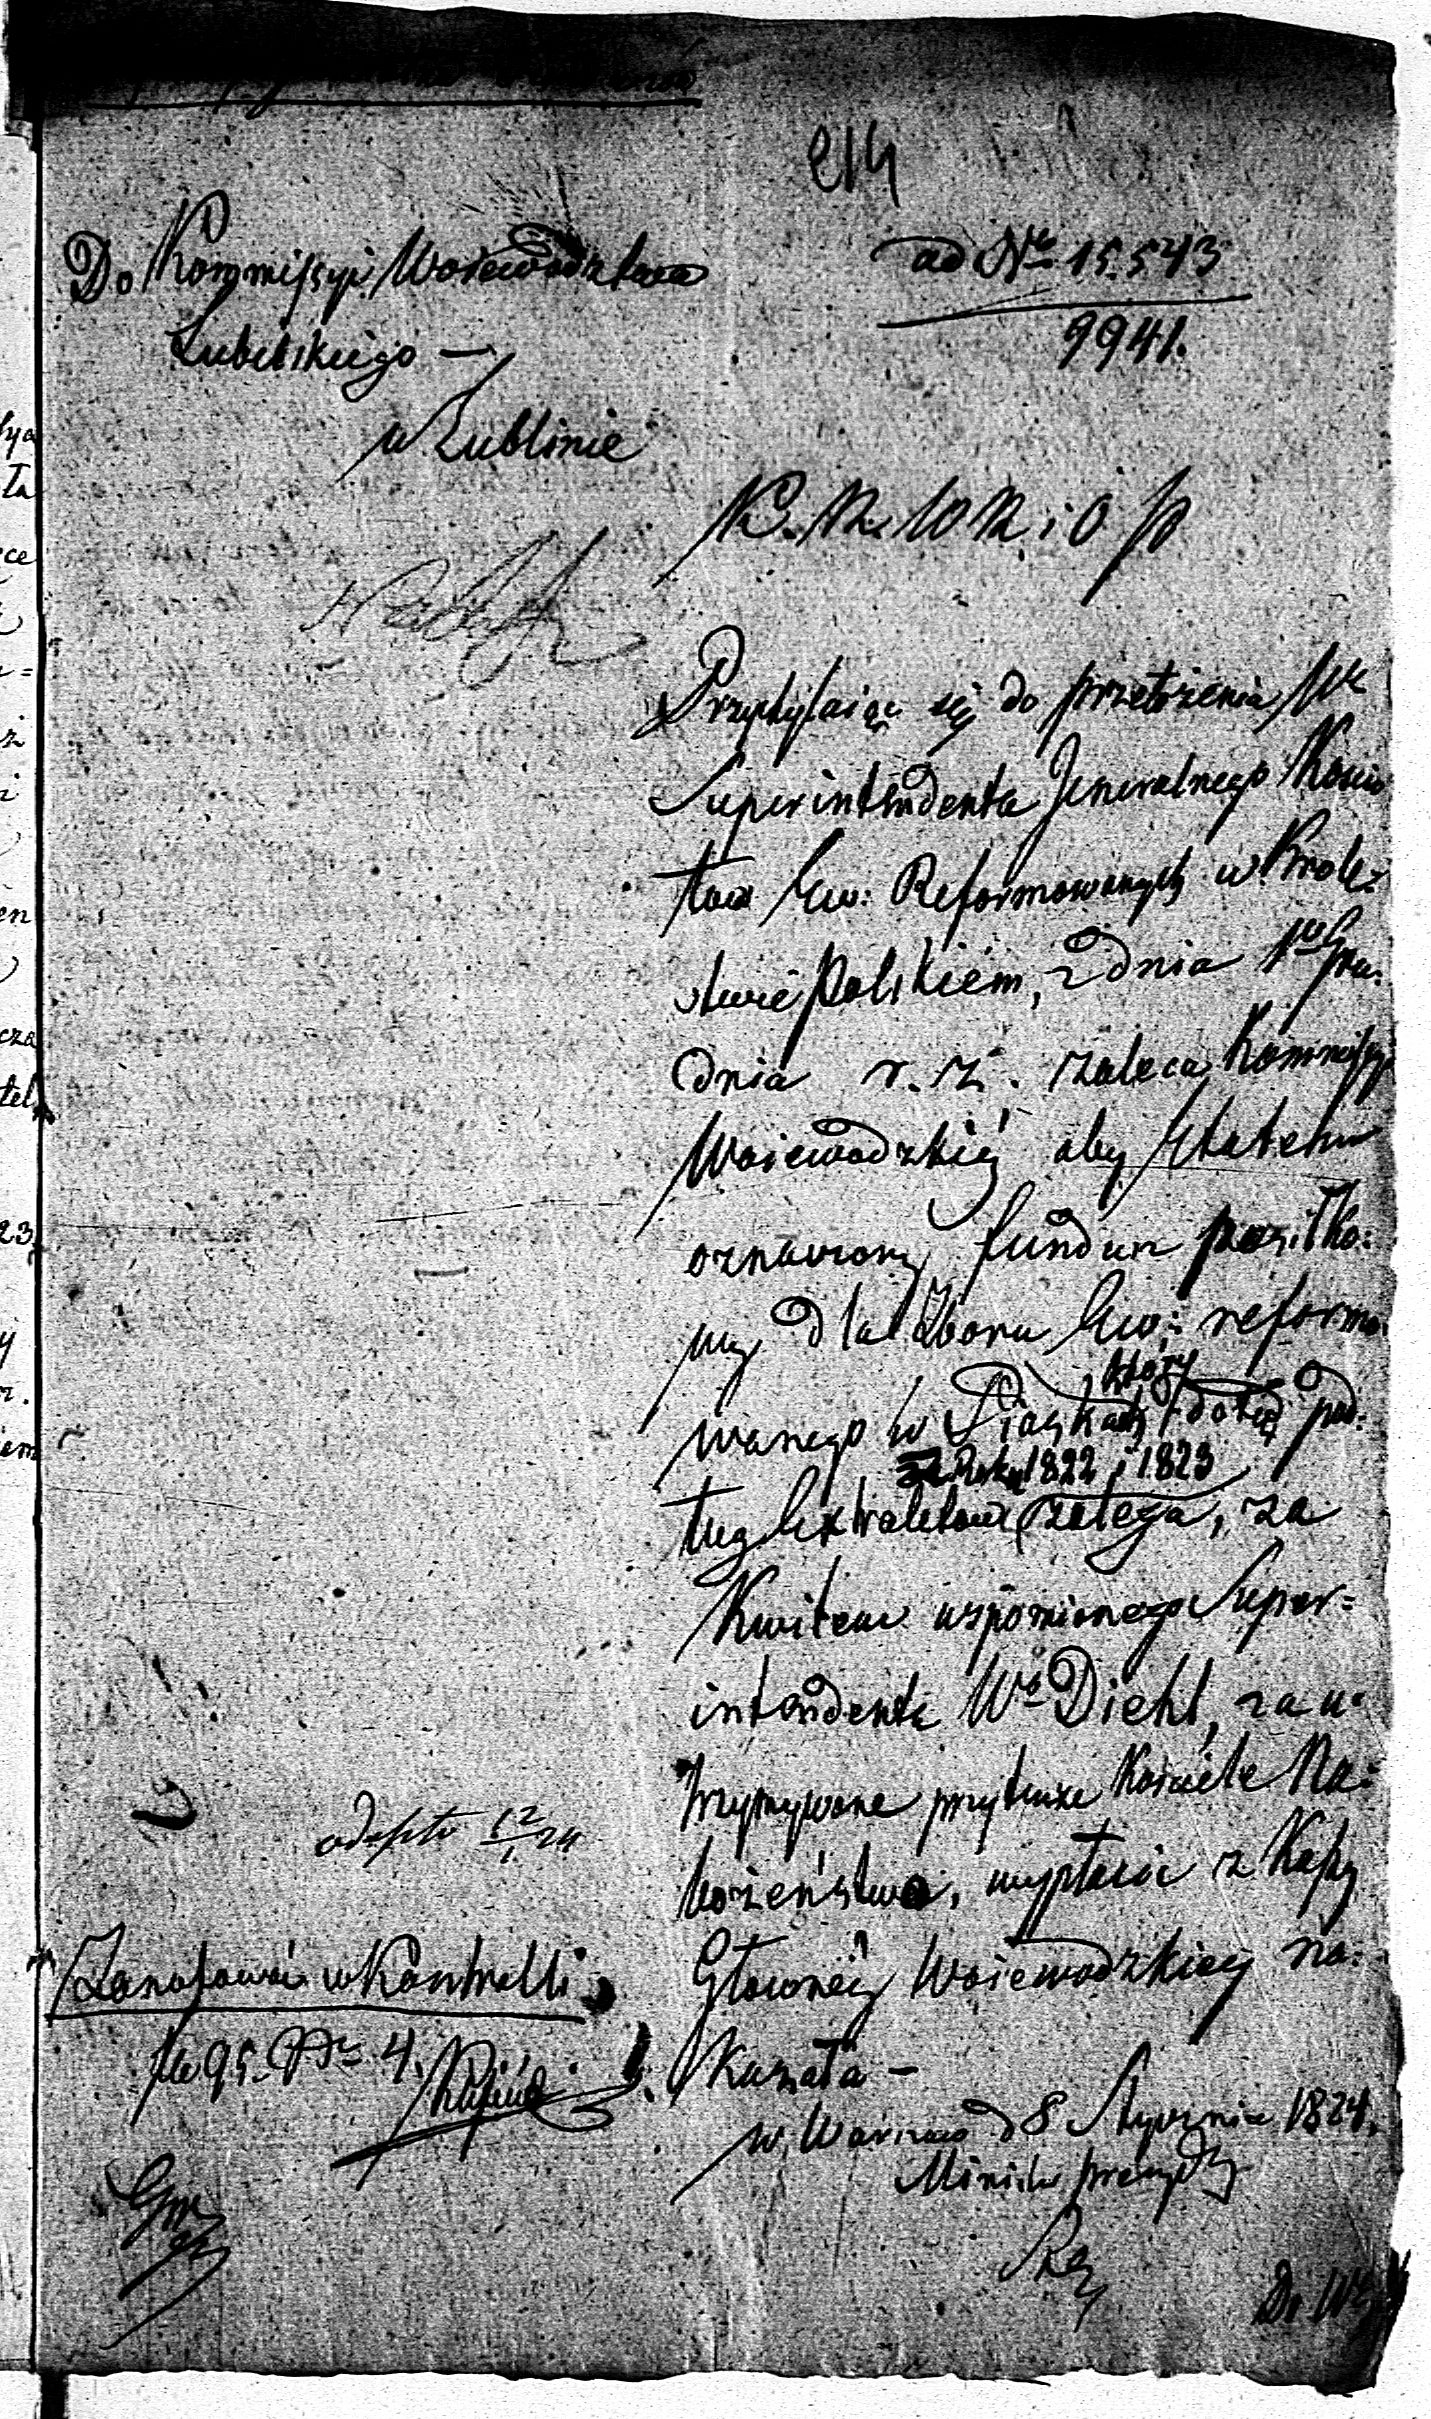 214
Do Kommissyi Woiewodztwa
Lubelskiego —
w Lublinie
ad Nr 15.543
9941.
K. R. W. R. i O P
Przychylaiąc się do przełożenia W
Superintendenta Jeneralnego Kościo
łow Ew: Reformowanych w Krole:
stwie Polskiem, z dnia 1go Gru:
dnia r. z. zaleca Kommissyi
Woiewodzkiey aby Etatem
oznaczony fundusz posiłko:
wy dla Zboru Ew: reformo:
wanego w Piaskach który dotąd pod:
ług Extraktow za Rok 1822 i 1823 zalega, za
Kwitem wspomionego Super:
intendenta Wo Diehl, za u:
trzymywane przy tymże Kościele Na:
bożeństwo, wypłacić z Kassy
Głowney Woiewodzkiey na:
kazała —
w Warszawie d 8 Stycznia 1824.
Ministr prezyd
odeszło 12/1 24
Zanotować w Kontrolli
Nr 4.
Do W